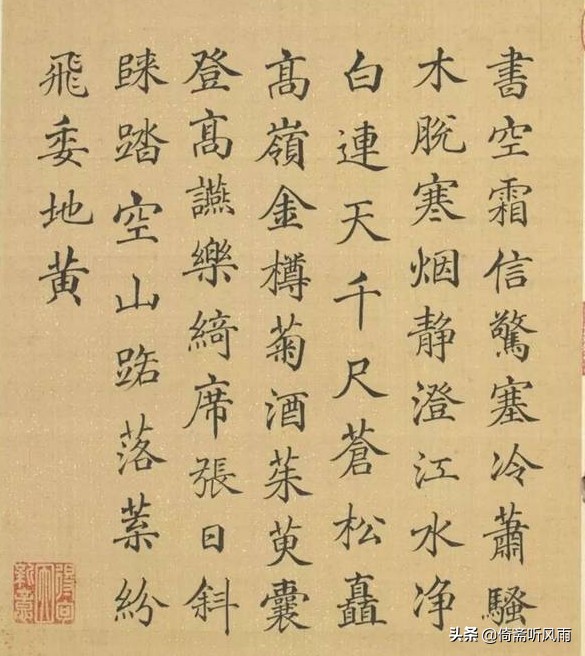 書空霜信驚塞冷蕭騷
木脫寒烟靜澄江水净
白連天千尺蒼松矗
髙嶺金樽菊酒茱萸囊
登髙讌樂綺席張日斜
踏空山路落葉紛
飛委地黃
头条 @倚斋听风雨